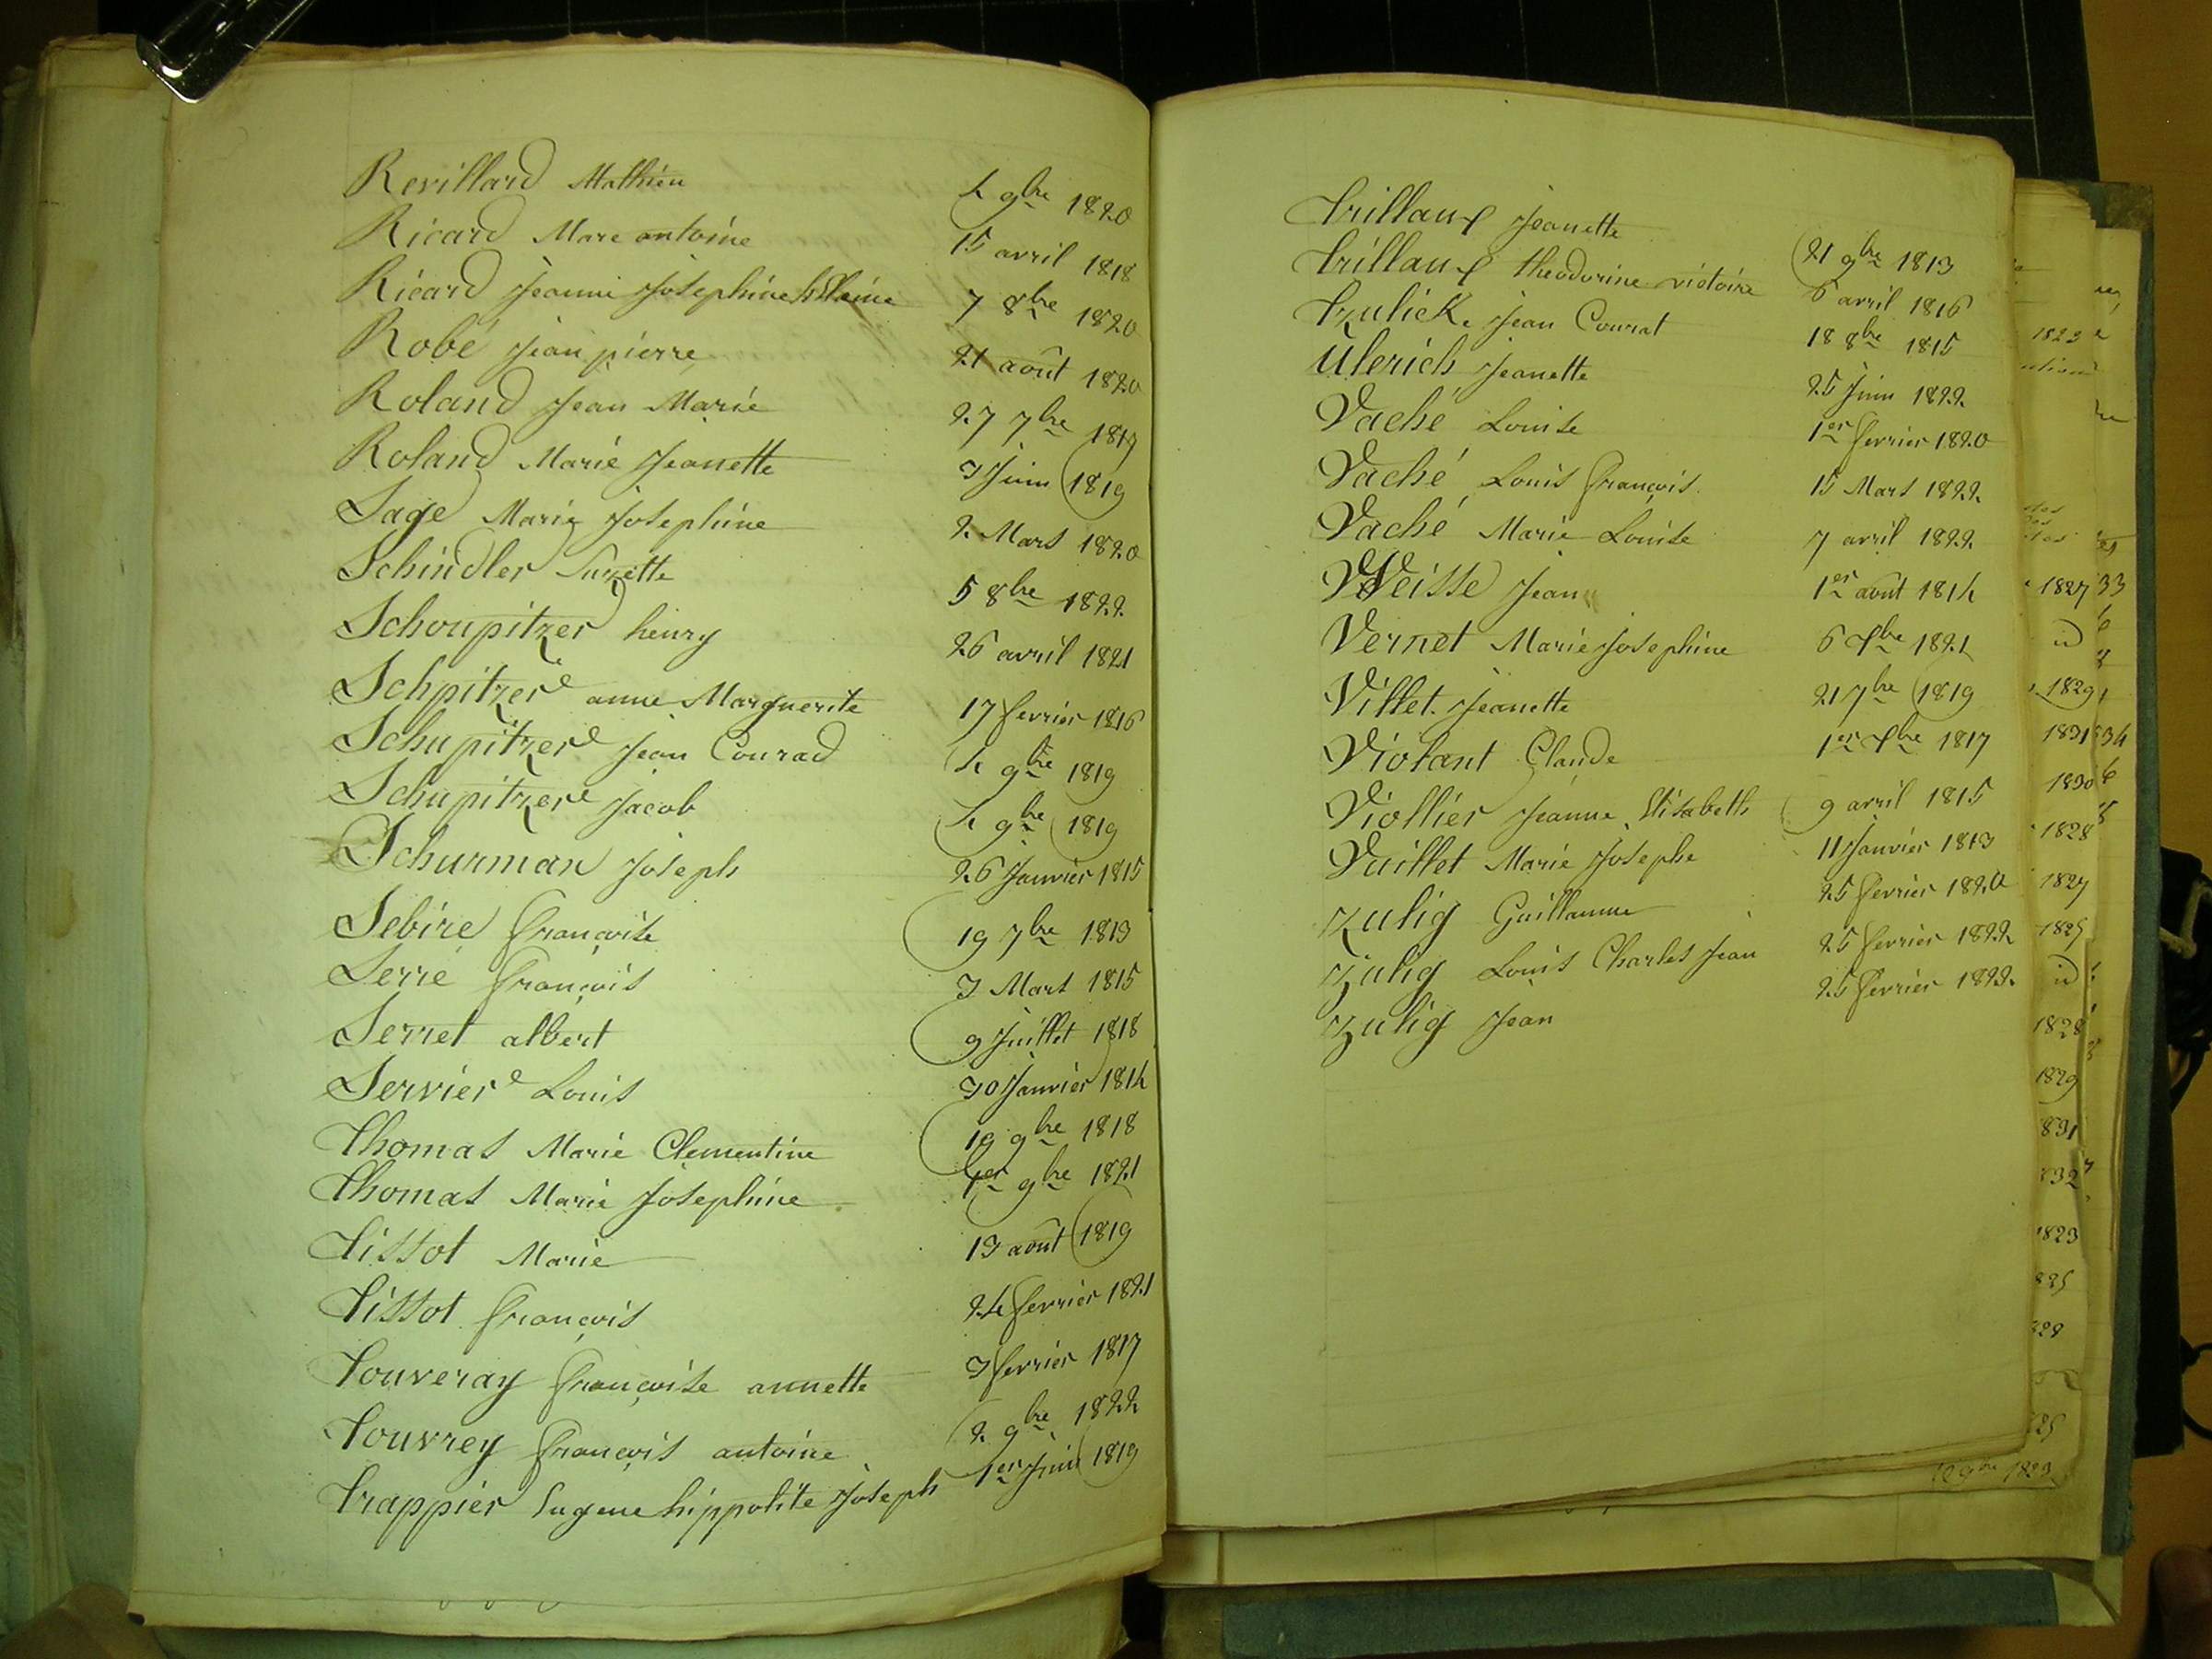 Revillard Mathieu 4 9bre 1820
Ricard Marc antoine 15 avril 1818
Ricard Jeanne Josephine 7 8bre 1820
Robé Jean pierre 21 août 1820
Roland Jean Marie 27 7bre 1817
Roland Marie Jeanette 3 Juin 1819
Sage Marie Josephine 2 Mars 1820
Schindler Suzette 5 8bre 1822
Schoupitzer henry 26 avril 1821
Schpitzere anne Marguerite 17 fevrier 1816
Schupitzere Jean Conrad 4 9bre 1819
Schupitzere Jacob 4 9bre 1819
Schurman Joseph 26 Janvier 1815
Sebire françoise 19 7bre 1813
Serré françois 3 Mars 1815
Serret albert 9 Juillet 1818
Serviere Louis 30 Janvier 1814
Thomas Marie Clementine 19 9bre 1818
Thomas Marie Josephine 1er 9bre 1821
Tissot Marie 13 août 1819
Tissot françois 24 fevrier 1821
Touveray françoise annette 3 fevrier 1817
Touvrey françois antoine 2 9bre 1822
Trappier Eugene hippolite Joseph 1er Juin 1819
Trillaux Jeanette 21 9bre 1813
Trillaux theodorine victoire 6 avril 1816
Tzulick Jean Conrat 18 8bre 1815
Ulerich Jeanette 25 Juin 1822
Vaché Louise 1er fevrier 1820
Vaché Louis françois 15 Mars 1822
Vaché Marie Louise 7 avril 1822
Weisse Jean 1er août 1814
Vernet Marie Josephine 6 Xbre 1821
Villet Jeanette 21 7bre 1819
Violant Claude 1er Xbre 1817
Viollier Jeanne Elisabeth 9 avril 1815
Vuillet Marie Josephe 11 Janvier 1813
Zulig Guillaume 25 fevrier 1820
Zulig Louis Charles Jean 25 fevrier 1822
Zulig Jean 25 fevrier 1822
1823
1827
id
1829
1831
1830
1828
1827
1825
id
1828
1829
1823
9bre 1823